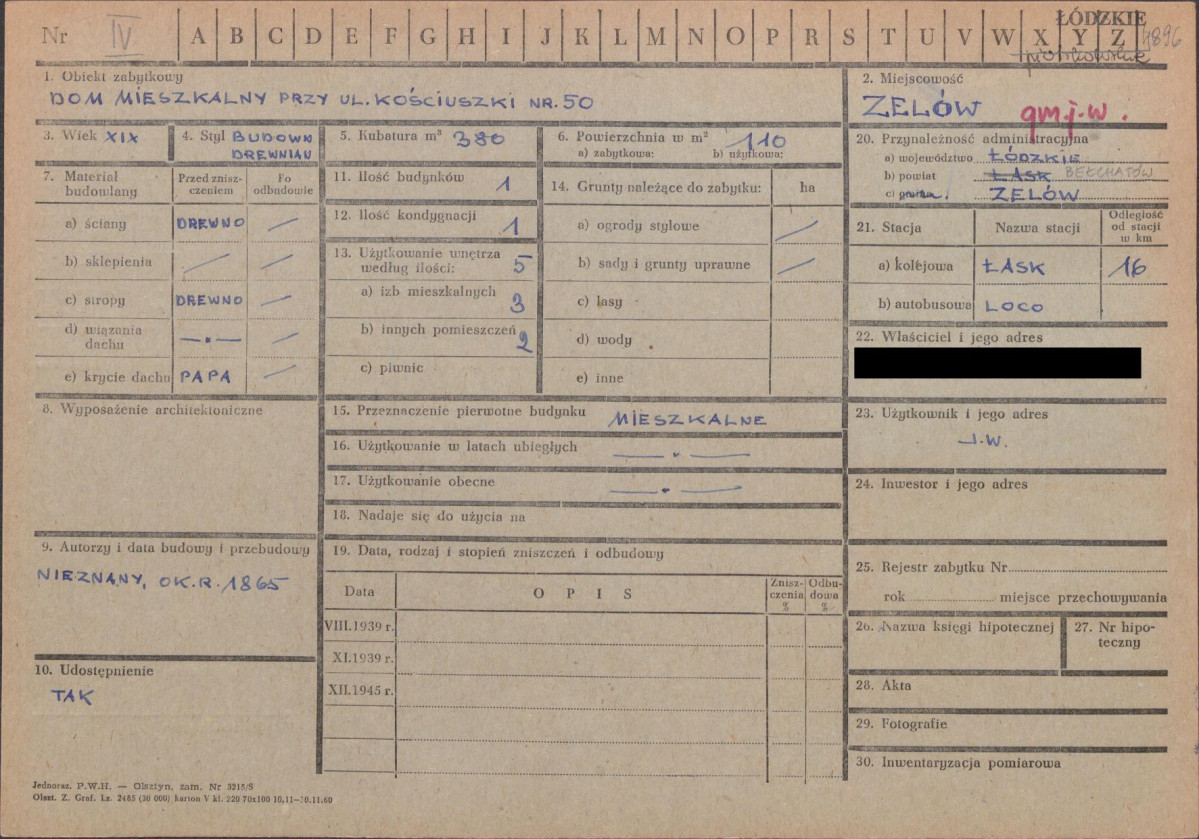 Nr IV A B C D E F G H I J K L M N O P R S T U V W X Y Z 4896
ŁÓDZKIE
piotrkowskie
1. Obiekt zabytkowy
DOM MIESZKALNY PRZY UL. KOŚCIUSZKI NR. 50
2. Miejscowość
ZELÓW gm.j.w.
3. Wiek XIX
4. Styl BUDOWN
DREWNIAN
5. Kubatura m³ 380
6. Powierzchnia w m² 110
a) zabytkowa: b) użytkowa:
7. Materiał budowlany
Przed zniszczeniem
Po odbudowie
a) ściany DREWNO —
b) sklepienia — —
c) stropy DREWNO —
d) wiązania dachu —•— —
e) krycie dachu PAPA —
8. Wyposażenie architektoniczne
9. Autorzy i data budowy i przebudowy
NIEZNANY, OK.R. 1865
10. Udostępnienie
TAK
11. Ilość budynków 1
12. Ilość kondygnacji 1
13. Użytkowanie wnętrza według ilości: 5
a) izb mieszkalnych 3
b) innych pomieszczeń 2
c) piwnic
14. Grunty należące do zabytku: ha
a) ogrody stylowe —
b) sady i grunty uprawne —
c) lasy
d) wody
e) inne
15. Przeznaczenie pierwotne budynku MIESZKALNE
16. Użytkowanie w latach ubiegłych —•—
17. Użytkowanie obecne —•—
18. Nadaje się do użycia na
19. Data, rodzaj i stopień zniszczeń i odbudowy
Data OPIS Zniszczenia % Odbudowa %
VIII.1939 r.
XI.1939 r.
XII.1945 r.
20. Przynależność administracyjna
a) województwo ŁÓDZKIE
b) powiat ŁASK BEŁCHATÓW
c) gmina ZELÓW
21. Stacja Nazwa stacji Odległość od stacji w km
a) kolejowa ŁASK 16
b) autobusowa LOCO
22. Właściciel i jego adres
23. Użytkownik i jego adres
J.W.
24. Inwestor i jego adres
25. Rejestr zabytku Nr
rok miejsce przechowywania
26. Nazwa księgi hipotecznej
27. Nr hipoteczny
28. Akta
29. Fotografie
30. Inwentaryzacja pomiarowa
Jednoraz. P.W.H. — Olsztyn, zam. Nr 3215/S
Olszt. Z. Graf. Lz. 2485 (30 000) karton V kl. 220 70x100 10.11—30.11.60